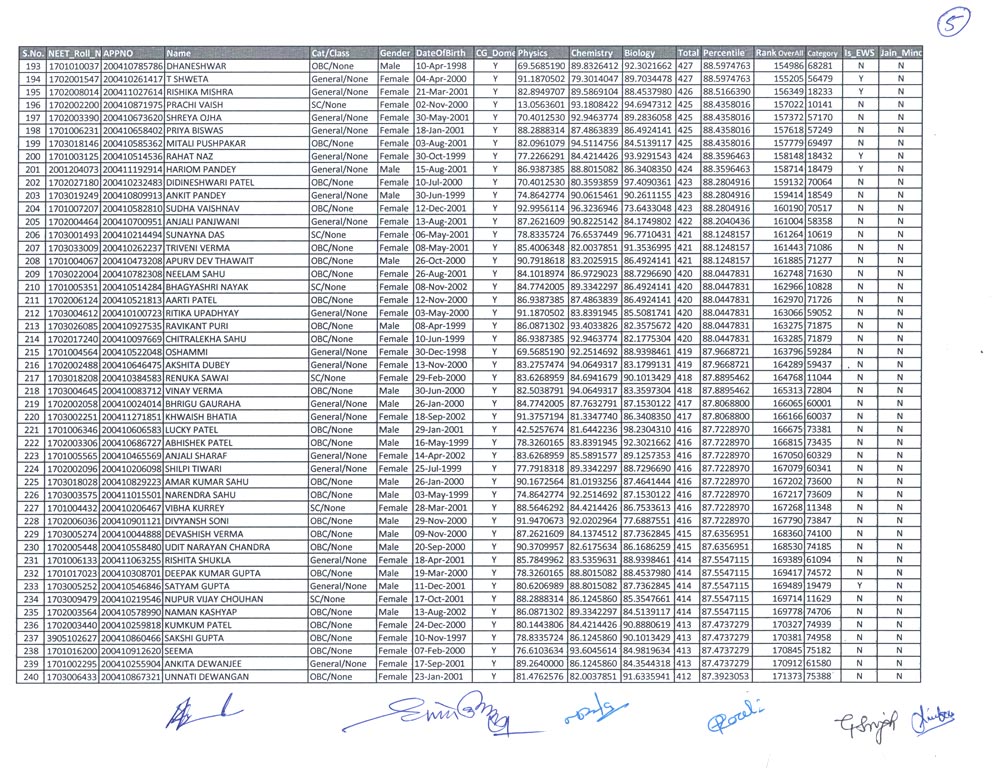 5
S.No. NEET_Roll_N APPNO Name Cat/Class Gender DateOfBirth CG_Dome Physics Chemistry Biology Total Percentile Rank OverAll Category Is_EWS Jain_Minc
193 1701010037 200410785786 DHANESHWAR OBC/None Male 10-Apr-1998 Y 69.5685190 89.8326412 92.3021662 427 88.5974763 154986 68281 N N
194 1702001547 200410261417 T SHWETA General/None Female 04-Apr-2000 Y 91.1870502 79.3014047 89.7034478 427 88.5974763 155205 56479 Y N
195 1702008014 200411027614 RISHIKA MISHRA General/None Female 21-Mar-2001 Y 82.8949707 89.5869104 88.4537980 426 88.5166390 156349 18233 Y N
196 1702002200 200410871975 PRACHI VAISH SC/None Female 02-Nov-2000 Y 13.0563601 93.1808422 94.6947312 425 88.4358016 157022 10141 N N
197 1702003390 200410673620 SHREYA OJHA General/None Female 30-May-2001 Y 70.4012530 92.9463774 89.2836058 425 88.4358016 157372 57170 N N
198 1701006231 200410658402 PRIYA BISWAS General/None Female 18-Jan-2001 Y 88.2888314 87.4863839 86.4924141 425 88.4358016 157618 57249 N N
199 1703018146 200410585362 MITALI PUSHPAKAR OBC/None Female 03-Aug-2001 Y 82.0961079 94.5114756 84.5139117 425 88.4358016 157779 69497 N N
200 1701003125 200410514536 RAHAT NAZ General/None Female 30-Oct-1999 Y 77.2266291 84.4214426 93.9291543 424 88.3596463 158148 18432 Y N
201 2001204073 200411192914 HARIOM PANDEY General/None Male 15-Aug-2001 Y 86.9387385 88.8015082 86.3408350 424 88.3596463 158714 18479 Y N
202 1702027180 200410232483 DIDINESHWARI PATEL OBC/None Female 10-Jul-2000 Y 70.4012530 80.3593859 97.4090361 423 88.2804916 159132 70064 N N
203 1703019249 200410809913 ANKIT PANDEY General/None Male 30-Jun-1999 Y 74.8642774 90.0615461 90.2611155 423 88.2804916 159414 18549 Y N
204 1701007207 200410582810 SUDHA VAISHNAV OBC/None Female 12-Dec-2001 Y 92.9956114 96.3236946 73.6433048 423 88.2804916 160190 70517 N N
205 1702004464 200410700951 ANJALI PANJWANI General/None Female 13-Aug-2001 Y 87.2621609 90.8225142 84.1749802 422 88.2040436 161004 58358 N N
206 1703001493 200410214494 SUNAYNA DAS SC/None Female 06-May-2001 Y 78.8335724 76.6537449 96.7710431 421 88.1248157 161264 10619 N N
207 1703033009 200410262237 TRIVENI VERMA OBC/None Female 08-May-2001 Y 85.4006348 82.0037851 91.3536995 421 88.1248157 161443 71086 N N
208 1701004067 200410473208 APURV DEV THAWAIT OBC/None Male 26-Oct-2000 Y 90.7918618 83.2025915 86.4924141 421 88.1248157 161885 71277 N N
209 1703022004 200410782308 NEELAM SAHU OBC/None Female 26-Aug-2001 Y 84.1018974 86.9729023 88.7296690 420 88.0447831 162748 71630 N N
210 1701005351 200410514284 BHAGYASHRI NAYAK SC/None Female 08-Nov-2002 Y 84.7742005 89.3342297 86.4924141 420 88.0447831 162966 10828 N N
211 1702006124 200410521813 AARTI PATEL OBC/None Female 12-Nov-2000 Y 86.9387385 87.4863839 86.4924141 420 88.0447831 162970 71726 N N
212 1703004612 200410100723 RITIKA UPADHYAY General/None Female 03-May-2000 Y 91.1870502 83.8391945 85.5081741 420 88.0447831 163066 59052 N N
213 1703026085 200410927535 RAVIKANT PURI OBC/None Male 08-Apr-1999 Y 86.0871302 93.4033826 82.3575672 420 88.0447831 163275 71875 N N
214 1702017240 200410097669 CHITRALEKHA SAHU OBC/None Female 10-Jun-1999 Y 86.9387385 92.9463774 82.1775304 420 88.0447831 163285 71879 N N
215 1701004564 200410522048 OSHAMMI General/None Female 30-Dec-1998 Y 69.5685190 92.2514692 88.9398461 419 87.9668721 163796 59284 N N
216 1702002488 200410646475 AKSHITA DUBEY General/None Female 13-Nov-2000 Y 83.2757474 94.0649317 83.1799131 419 87.9668721 164289 59437 N N
217 1703018208 200410384583 RENUKA SAWAI SC/None Female 29-Feb-2000 Y 83.6268959 84.6941679 90.1013429 418 87.8895462 164768 11044 N N
218 1703004645 200410083712 VINAY VERMA OBC/None Male 30-Jun-2000 Y 82.5038791 94.0649317 83.3597304 418 87.8895462 165313 72804 N N
219 1702002058 200410024014 BHRIGU GAURAHA General/None Male 26-Jan-2000 Y 84.7742005 87.7632791 87.1530122 417 87.8068800 166065 60001 N N
220 1703002251 200411271851 KHWAISH BHATIA General/None Female 18-Sep-2002 Y 91.3757194 81.3347740 86.3408350 417 87.8068800 166166 60037 N N
221 1701006346 200410606583 LUCKY PATEL OBC/None Male 29-Jan-2001 Y 42.5257674 81.6442236 98.2304310 416 87.7228970 166675 73381 N N
222 1702003306 200410686727 ABHISHEK PATEL OBC/None Male 16-May-1999 Y 78.3260165 83.8391945 92.3021662 416 87.7228970 166815 73435 N N
223 1701005565 200410465569 ANJALI SHARAF General/None Female 14-Apr-2002 Y 83.6268959 85.5891577 89.1257353 416 87.7228970 167050 60329 N N
224 1702002096 200410206098 SHILPI TIWARI General/None Female 25-Jul-1999 Y 77.7918318 89.3342297 88.7296690 416 87.7228970 167079 60341 N N
225 1703018028 200410829223 AMAR KUMAR SAHU OBC/None Male 26-Jan-2000 Y 90.1672564 81.0193256 87.4641444 416 87.7228970 167202 73600 N N
226 1703003575 200411015501 NARENDRA SAHU OBC/None Male 03-May-1999 Y 74.8642774 92.2514692 87.1530122 416 87.7228970 167217 73609 N N
227 1701004432 200410206467 VIBHA KURREY SC/None Female 28-Mar-2001 Y 88.5646292 84.4214426 86.7533613 416 87.7228970 167268 11348 N N
228 1702006036 200410901121 DIVYANSH SONI OBC/None Male 29-Nov-2000 Y 91.9470673 92.0202964 77.6887551 416 87.7228970 167790 73847 N N
229 1703005274 200410044888 DEVASHISH VERMA OBC/None Male 09-Nov-2000 Y 87.2621609 84.1374512 87.7362845 415 87.6356951 168360 74100 N N
230 1702005448 200410558480 UDIT NARAYAN CHANDRA OBC/None Male 20-Sep-2000 Y 90.3709957 82.6175634 86.1686259 415 87.6356951 168530 74185 N N
231 1701006133 200411063255 RISHITA SHUKLA General/None Female 18-Apr-2001 Y 85.7849962 83.5359631 88.9398461 414 87.5547115 169389 61094 N N
232 1701017023 200410308701 DEEPAK KUMAR GUPTA OBC/None Male 19-Mar-2000 Y 78.3260165 88.8015082 88.4537980 414 87.5547115 169417 74572 N N
233 1703005252 200410546846 SATYAM GUPTA General/None Male 11-Dec-2001 Y 80.6206989 88.8015082 87.7362845 414 87.5547115 169489 19479 Y N
234 1703009479 200410219546 NUPUR VIJAY CHOUHAN SC/None Female 17-Oct-2001 Y 88.2888314 86.1245860 85.3547661 414 87.5547115 169714 11629 N N
235 1702003564 200410578990 NAMAN KASHYAP OBC/None Male 13-Aug-2002 Y 86.0871302 89.3342297 84.5139117 414 87.5547115 169778 74706 N N
236 1702003440 200410259818 KUMKUM PATEL OBC/None Female 24-Dec-2000 Y 80.1443806 84.4214426 90.8880619 413 87.4737279 170327 74939 N N
237 3905102627 200410860466 SAKSHI GUPTA OBC/None Female 10-Nov-1997 Y 78.8335724 86.1245860 90.1013429 413 87.4737279 170381 74958 N N
238 1701016200 200410912620 SEEMA OBC/None Female 07-Feb-2000 Y 76.6103634 93.6045614 84.9819634 413 87.4737279 170845 75182 N N
239 1701002295 200410255904 ANKITA DEWANJEE General/None Female 17-Sep-2001 Y 89.2640000 86.1245860 84.3544318 413 87.4737279 170912 61580 N N
240 1703006433 200410867321 UNNATI DEWANGAN OBC/None Female 23-Jan-2001 Y 81.4762576 82.0037851 91.6335941 412 87.3923053 171373 75388 N N